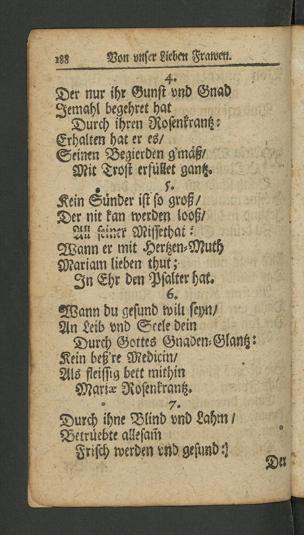 188 Von unser Lieben Frawen.
4.
Der nur ihr Gunst vnd Gnad
Jemahl begehret hat
Durch ihren Rosenkrantz:
Erhalten hat er es/
Seinen Begierden g'mäß/
Mit Trost erfüllet gantz.
5.
Kein Sünder ist so groß/
Der nit kan werden looß/
All seiner Missethat:
Wann er mit Hertzen-Muth
Mariam lieben thut;
In Ehr den Psalter hat.
6.
Wann du gesund wilt seyn/
An Leib vnd Seele dein
Durch Gottes Gnaden-Glantz:
Kein beß're Medicin/
Als fleissig bett mithin
Mariæ Rosenkrantz.
7.
Durch ihne Blind vnd Lahm/
Betrüebte allesam̃
Frisch werden vnd gesund:
Der